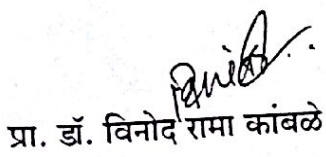 प्रा. डॉ. विनोद रामा कांबळे